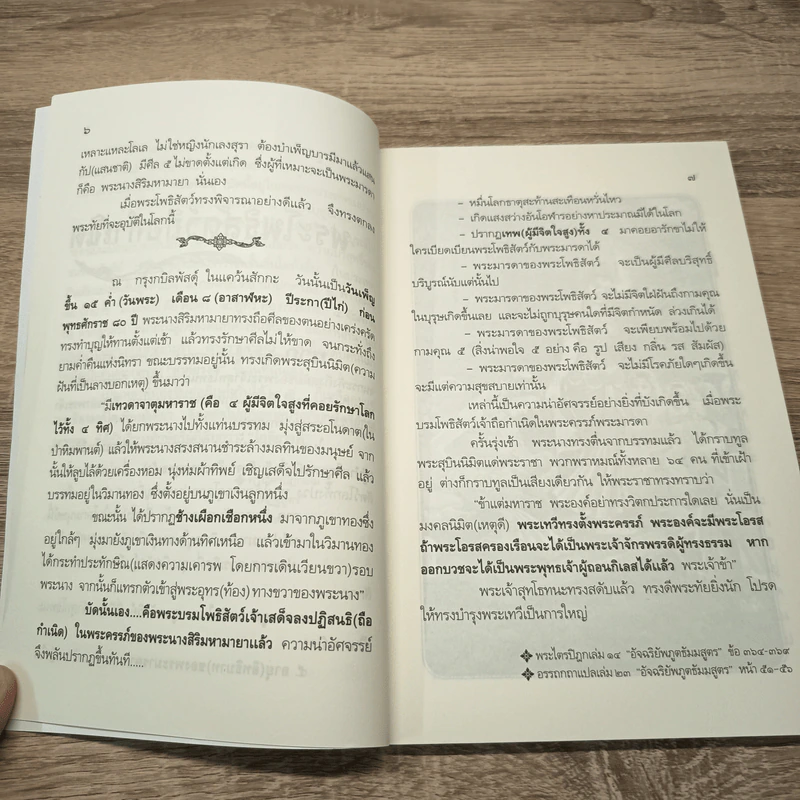 ๖
เหลาะแหละโลเล ไม่ใช่หญิงนักเลงสุรา ต้องบำเพ็ญบารมีมาแล้วแสน
กัป(แสนชาติ) มีศีล ๕ ไม่ขาดตั้งแต่เกิด ซึ่งผู้ที่เหมาะจะเป็นพระมารดา
ก็คือ พระนางสิริมหามายา นั่นเอง
เมื่อพระโพธิสัตว์ทรงพิจารณาอย่างดีแล้ว จึงทรงตกลง
พระทัยที่จะอุบัติในโลกนี้
ณ กรุงกบิลพัสดุ์ ในแคว้นสักกะ วันนั้นเป็นวันเพ็ญ
ขึ้น ๑๕ ค่ำ (วันพระ) เดือน ๘ (อาสาฬหะ) ปีระกา(ปีไก่) ก่อน
พุทธศักราช ๘๐ ปี พระนางสิริมหามายาทรงถือศีลของตนอย่างเคร่งครัด
ทรงทำบุญให้ทานตั้งแต่เช้า แล้วทรงรักษาศีลไม่ให้ขาด จนกระทั่งถึง
ยามค่ำคืนแห่งนิทรา ขณะบรรทมอยู่นั้น ทรงเกิดพระสุบินนิมิต(ความ
ฝันที่เป็นลางบอกเหตุ) ขึ้นมาว่า
"มีเทวดาจาตุมหาราช (คือ ๔ ผู้มีจิตใจสูงที่คอยรักษาโลก
ไว้ทั้ง ๔ ทิศ) ได้ยกพระนางไปทั้งแท่นบรรทม มุ่งสู่สระอโนดาต(ใน
ป่าหิมพานต์) แล้วให้พระนางสรงสนานชำระล้างมลทินของมนุษย์ จาก
นั้นให้ลูบไล้ด้วยเครื่องหอม นุ่งห่มผ้าทิพย์ เชิญเสด็จไปรักษาศีล แล้ว
บรรทมอยู่ในวิมานทอง ซึ่งตั้งอยู่บนภูเขาเงินลูกหนึ่ง
ขณะนั้น ได้ปรากฏช้างเผือกเชือกหนึ่ง มาจากภูเขาทองซึ่ง
อยู่ใกล้ๆ มุ่งมายังภูเขาเงินทางด้านทิศเหนือ แล้วเข้ามาในวิมานทอง
ได้กระทำประทักษิณ(แสดงความเคารพ โดยการเดินเวียนขวา)รอบ
พระนาง จากนั้นก็แทรกตัวเข้าสู่พระอุทร(ท้อง)ทางขวาของพระนาง"
บัดนั้นเอง....คือพระบรมโพธิสัตว์เจ้าเสด็จลงปฏิสนธิ(ถือ
กำเนิด) ในพระครรภ์ของพระนางสิริมหามายาแล้ว ความน่าอัศจรรย์
จึงพลันปรากฏขึ้นทันที.....
๗
– หมื่นโลกธาตุสะท้านสะเทือนหวั่นไหว
– เกิดแสงสว่างอันโอฬารอย่างหาประมาณมิได้ในโลก
– ปรากฏเทพ(ผู้มีจิตใจสูง)ทั้ง ๔ มาคอยอารักขาไม่ให้
ใครเบียดเบียนพระโพธิสัตว์กับพระมารดาได้
– พระมารดาของพระโพธิสัตว์ จะเป็นผู้มีศีลบริสุทธิ์
บริบูรณ์นับแต่นั้นไป
– พระมารดาของพระโพธิสัตว์ จะไม่มีจิตใฝ่ฝันถึงกามคุณ
ในบุรุษเกิดขึ้นเลย และจะไม่ถูกบุรุษคนใดที่มีจิตกำหนัด ล่วงเกินได้
– พระมารดาของพระโพธิสัตว์ จะเพียบพร้อมไปด้วย
กามคุณ ๕ (สิ่งน่าพอใจ ๕ อย่าง คือ รูป เสียง กลิ่น รส สัมผัส)
– พระมารดาของพระโพธิสัตว์ จะไม่มีโรคภัยใดๆเกิดขึ้น
จะมีแต่ความสุขสบายเท่านั้น
เหล่านี้เป็นความน่าอัศจรรย์อย่างยิ่งที่บังเกิดขึ้น เมื่อพระ
บรมโพธิสัตว์เจ้าถือกำเนิดในพระครรภ์พระมารดา
ครั้นรุ่งเช้า พระนางทรงตื่นจากบรรทมแล้ว ได้กราบทูล
พระสุบินนิมิตแด่พระราชา พวกพราหมณ์ทั้งหลาย ๖๔ คน ที่เข้าเฝ้า
อยู่ ต่างก็กราบทูลเป็นเสียงเดียวกัน ให้พระราชาทรงทราบว่า
"ข้าแต่มหาราช พระองค์อย่าทรงวิตกประการใดเลย นั่นเป็น
มงคลนิมิต(เหตุดี) พระเทวีทรงตั้งพระครรภ์ พระองค์จะมีพระโอรส
ถ้าพระโอรสครองเรือนจะได้เป็นพระเจ้าจักรพรรดิผู้ทรงธรรม หาก
ออกบวชจะได้เป็นพระพุทธเจ้าผู้ถอนกิเลสได้แล้ว พระเจ้าข้า"
พระเจ้าสุทโธทนะทรงสดับแล้ว ทรงดีพระทัยยิ่งนัก โปรด
ให้ทรงบำรุงพระเทวีเป็นการใหญ่
พระไตรปิฎกเล่ม ๑๔ "อัจฉริยัพภูตธัมมสูตร" ข้อ ๓๖๔-๓๖๙
อรรถกถาแปลเล่ม ๒๓ "อัจฉริยัพภูตธัมมสูตร" หน้า ๕๑-๕๖